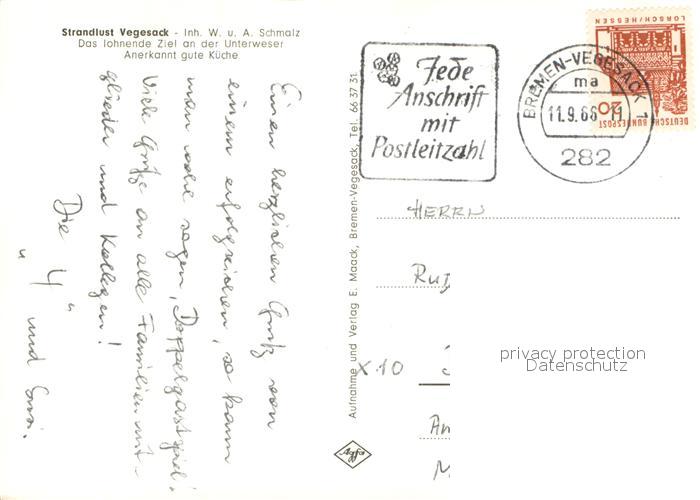 Strandlust Vegesack - Inh. W. u. A. Schmalz
Das lohnende Ziel an der Unterweser
Anerkannt gute Küche
Einen herzlichen Gruß von
einem erfolgreichen, so kann
man wohl sagen, „Doppelgastspiel".
Viele Grüße an alle Familienmit-
glieder und Kollegen!
Die „4" und
Aufnahme und Verlag E. Maack, Bremen-Vegesack, Tel. 66 37 31
Agfa
Jede
Anschrift
mit
Postleitzahl
BREMEN-VEGESACK 1
ma
11.9.66-11
282
DEUTSCHE BUNDESPOST
20
LORSCH/HESSEN
HERRN
X10
privacy protection
Datenschutz